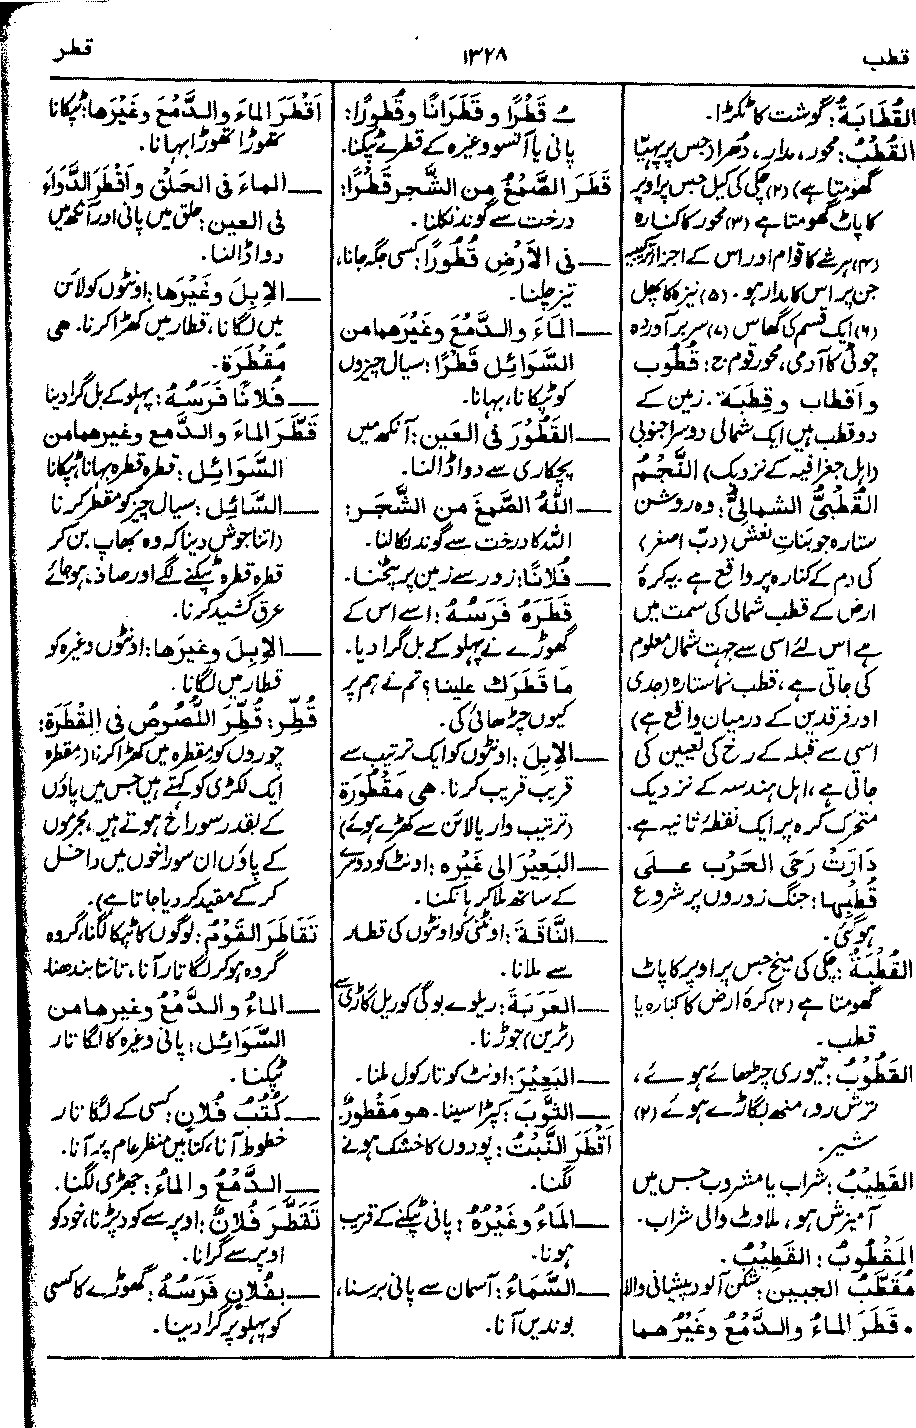 قطب
۱۳۲۸
قطر
القُطَابَةُ: گوشت کا ٹکڑا۔
القُطْبُ: محور، مدار، دھرا (جس پر پہیّا
گھومتا ہے) (۲) چکّی کی کیل جس پر اوپر
کا پاٹ گھومتا ہے (۳) محور کا کنارہ
(۴) ہر شے کا قوام اور اس کے اجزاء ترکیبیہ
جن پر اس کا مدار ہو۔ (۵) نیزہ کا پھل
(۶) ایک قسم کی گھاس (۷) سربرآوردہ
چوٹی کا آدمی، محور قوم ج: قُطُوب
و اَقطاب و قِطَبَة۔ زمین کے
دو قطب ہیں ایک شمالی دوسرا جنوبی
(اہل جغرافیہ کے نزدیک) النَّجْمُ
القُطْبِیُّ الشمالیُّ: وہ روشن
ستارہ جو بناتِ نعش (دبّ اصغر)
کی دم کے کنارہ پر واقع ہے۔ یہ کرۂ
ارض کے قطب شمالی کی سمت میں
ہے اس لئے اسی سے جہت شمال معلوم
کی جاتی ہے، قطب نما ستارہ (جدی
اور فرقدین کے درمیان واقع ہے)
اسی سے قبلہ کے رخ کی تعیین کی
جاتی ہے، اہل ہندسہ کے نزدیک
متحرک کرہ پر ایک نقطۂ ثانیہ ہے۔
دَارَتْ رَحَی الحَرْبِ علی
قُطْبِها: جنگ زوروں پر شروع
ہوگئی۔
القُطْبَةُ: چکّی کی میخ جس پر اوپر کا پاٹ
گھومتا ہے (۲) کرۂ ارض کا کنارہ یا
قطب۔
القَطُوْبُ: تیوری چڑھائے ہوئے،
ترش رو، منھ بگاڑے ہوئے (۲)
شیر۔
القَطِیْبُ: شراب یا مشروب جس میں
آمیزش ہو، ملاوٹ والی شراب۔
المَقْطُوبُ: القَطِیْبُ۔
مُقَطَّبُ الجبین: شکن آلود پیشانی والا
• قَطَرَ الماءُ والدَّمْعُ وغَیْرُهما
ـُـ قَطْرًا و قَطَرَانًا و قُطُورًا:
پانی یا آنسو وغیرہ کے قطرے ٹپکنا۔
قَطَرَ الصَّمْغُ مِن الشَّجرِ قَطْرًا:
درخت سے گوند نکلنا۔
ــــ فی الأرْضِ قُطُورًا: کسی جگہ جانا،
تیز چلنا۔
ــــ الماءَ والدَّمْعَ وغَیْرَهما من
السَّوَائِلِ قَطْرًا: سیال چیزوں
کو ٹپکانا، بہانا۔
ــــ القَطُوْرَ فی العَین: آنکھ میں
پچکاری سے دوا ڈالنا۔
ــــ اللهُ الصَّمْغَ مِن الشَّجَرِ:
اللہ کا درخت سے گوند نکالنا۔
ــــ فُلانًا: زور سے زمین پر پٹخنا۔
قَطَرَهُ فَرَسُهُ: اسے اس کے
گھوڑے نے پہلو کے بل گرا دیا۔
مَا قَطَرَك علینا؟ تم نے ہم پر
کیوں چڑھائی کی۔
ــــ الإبِلَ: اونٹوں کو ایک ترتیب سے
قریب قریب کرنا۔ هی مَقْطُورَة
(ترتیب وار یا لائن سے کھڑے ہوئے)
ــــ البَعِیْرَ الی غَیْرِه: اونٹ کو دوسرے
کے ساتھ ملا کر ہانکنا۔
ــــ النَّاقَةَ: اونٹنی کو اونٹوں کی قطار
سے ملانا۔
ــــ العَرَبَةَ: ریلوے بوگی کو ریل گاڑی سے
(ٹرین) جوڑنا۔
ــــ البَعِیْرَ: اونٹ کو تارکول ملنا۔
ــــ الثَّوْبَ: کپڑا سینا۔ هو مَقْطُورٌ
أقْطَرَ النَّبْتُ: پودوں کا خشک ہونے
لگنا۔
ــــ الماءُ وغَیْرُهُ: پانی ٹپکنے کے قریب
ہونا۔
ــــ السَّمَاءُ: آسمان سے پانی برسنا،
بوندیں آنا۔
اَقْطَرَ الماءَ والدَّمْعَ وغَیْرَها: ٹپکانا
تھوڑا تھوڑا بہانا۔
ــــ الماءَ فی الحَلْقِ وأقْطَرَ الدَّوَاءَ
فی العین: حلق میں پانی اور آنکھ میں
دوا ڈالنا۔
ــــ الإبِلَ وغَیْرَها: اونٹوں کو لائن
میں لگانا، قطار میں کھڑا کرنا۔ هی
مُقْطَرَة۔
ــــ فُلانًا فَرَسُهُ: پہلو کے بل گرا دینا
قَطَّرَ الماءَ والدَّمعَ وغیرهما من
السَّوَائِلِ: قطرہ قطرہ بہانا، ٹپکانا
ــــ السَّائِلَ: سیال چیز کو مقطر کرنا
(اتنا جوش دینا کہ وہ بھاپ بن کر
قطرہ قطرہ ٹپکنے لگے اور صاف ہو جائے
عرق کشید کرنا۔
ــــ الإبِلَ وغَیْرَها: اونٹوں وغیرہ کو
قطار میں لگانا۔
قُطِّر: قُطِّرَ اللُّصُوصُ فی المِقْطَرَةِ:
چوروں کو مِقطرہ میں کھڑا کرنا (مِقطرہ
ایک لکڑی کو کہتے ہیں جس میں پاؤں
کے بقدر سوراخ ہوتے ہیں، مجرموں
کے پاؤں ان سوراخوں میں داخل
کر کے مقید کر دیا جاتا ہے)۔
تَقَاطَرَ القَوْمُ: لوگوں کا ٹپکا لگانا، گروہ
گروہ ہو کر لگاتار آنا، تانتا بندھنا۔
ــــ الماءُ والدَّمْعُ وغیرهما من
السَّوَائِلِ: پانی وغیرہ کا لگا تار
ٹپکنا۔
ــــ کُتُبُ فُلانٍ: کسی کے لگا تار
خطوط آنا، کتابیں منظر عام پر آنا۔
ــــ الدَّمْعُ والماءُ: جھڑی لگنا۔
تَقَطَّرَ فُلانٌ: اوپر سے کود پڑنا، خود کو
اوپر سے گرانا۔
ــــ بِفُلانٍ فَرَسُهُ: گھوڑے کا کسی
کو پہلو پر گرا دینا۔